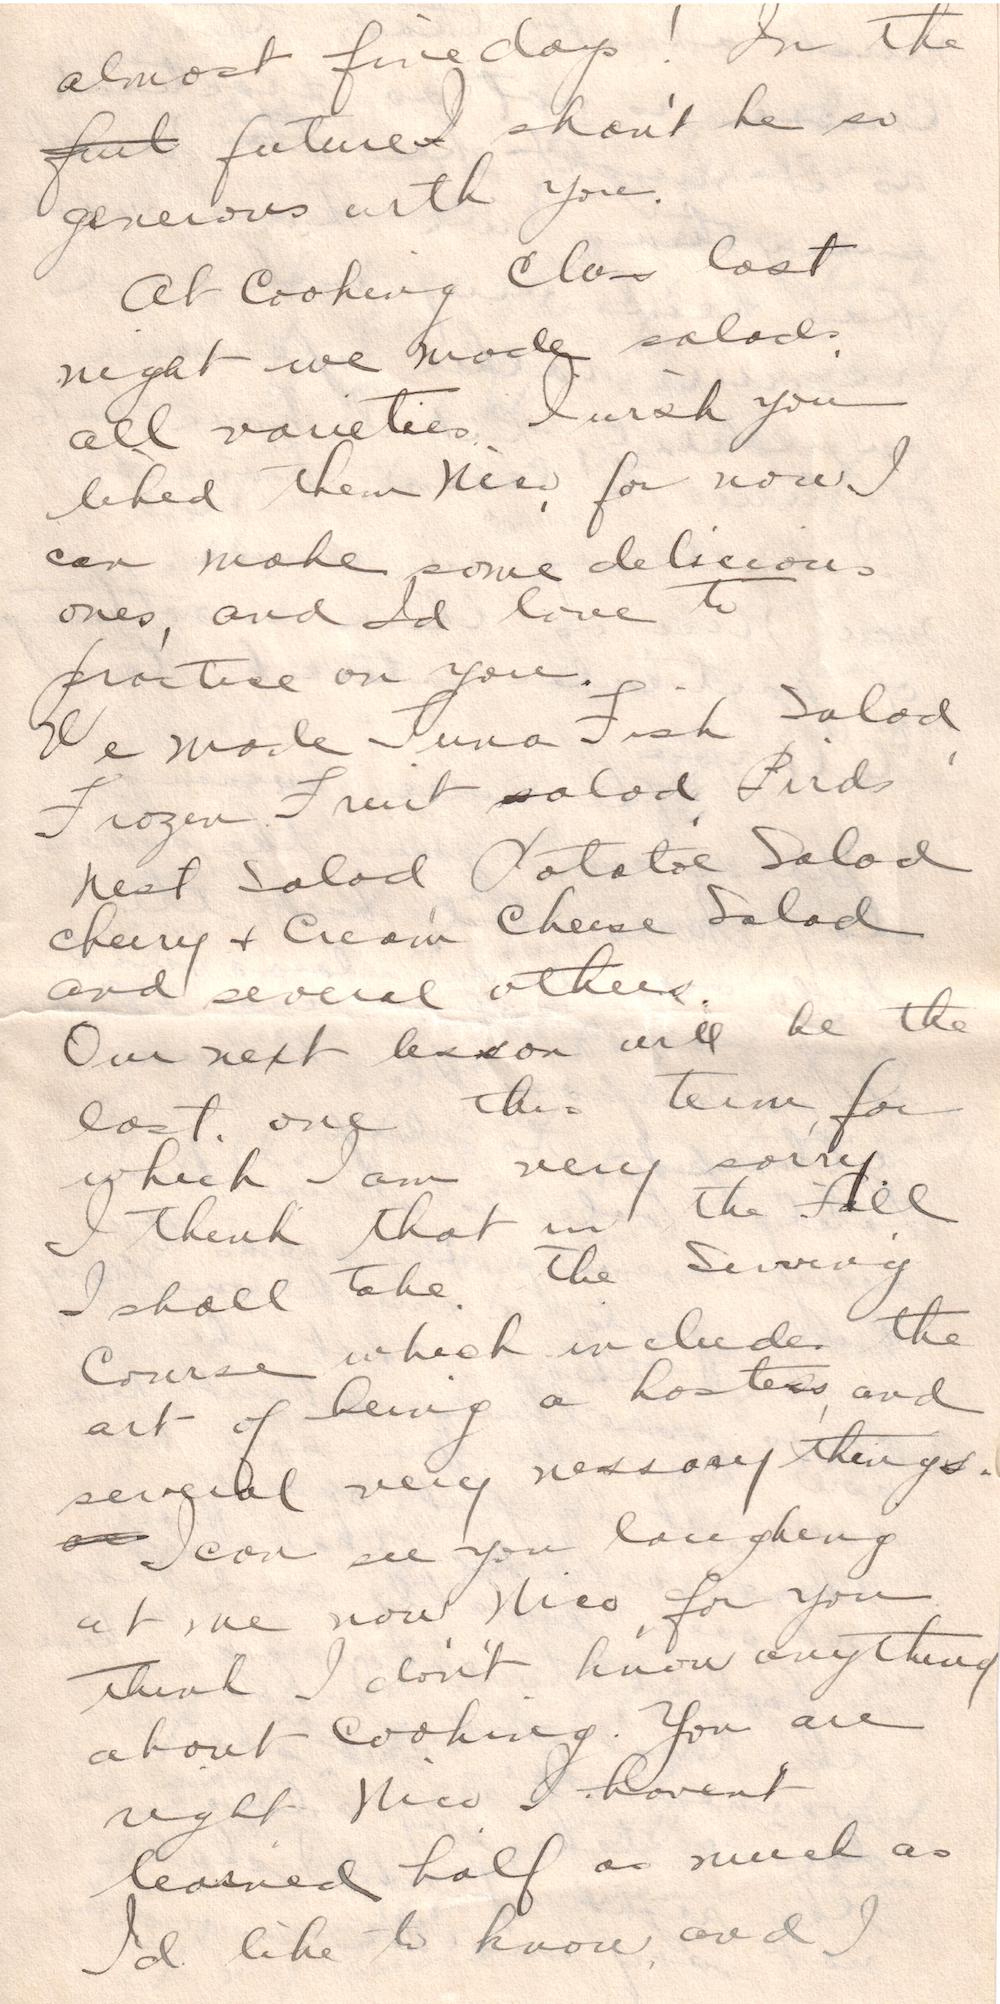 almost five days! In the
fut future I shan't be so
generous with you.
At Cooking Class last
night we made salads.
all varieties. I wish you
liked them Nico, for now I
can make some delicious
ones, and I'd love to
practice on you.
We made Tuna Fish Salad,
Frozen Fruit salad, Birds
Nest Salad Potatoe Salad
Cherry + Cream Cheese Salad
and several others.
Our next lesson will be the
last. one this term, for
which I am very sorry.
I think that in the Fall
I shall take. the Serving
Course which includes the
art of being a hostess, and
several very nessary things.
I can see you laughing
at me now Nico, for you
think I don't know anything
about Cooking. You are
right Nico I haven't
learned half as much as
I'd like to know, and I